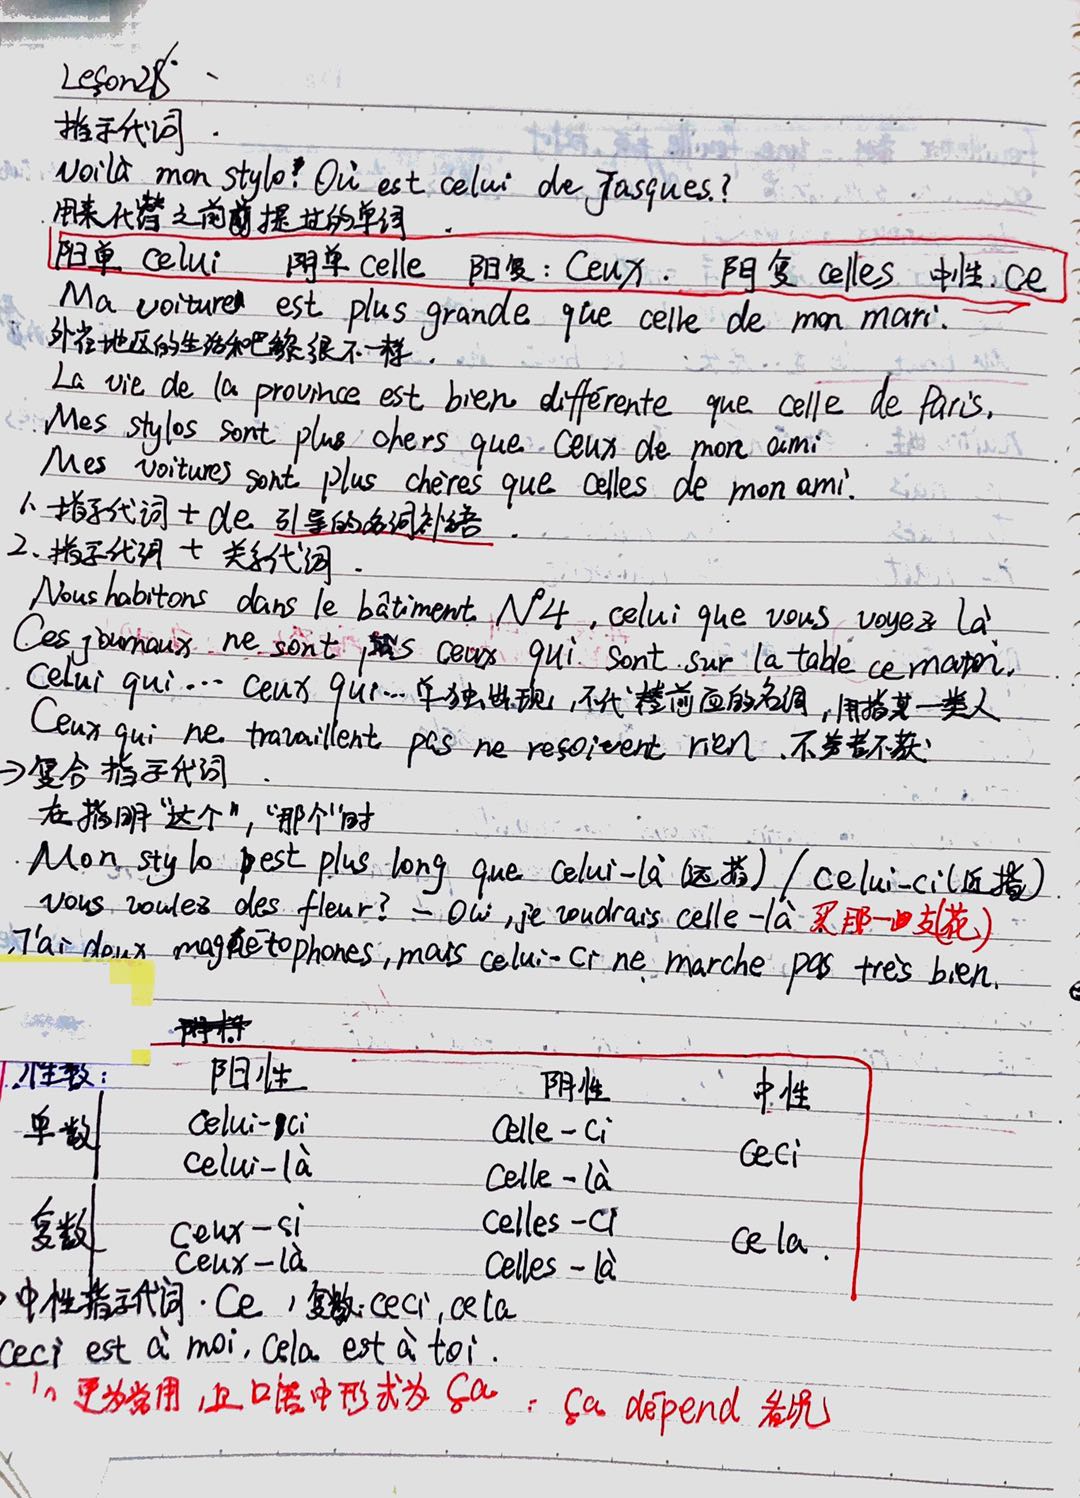 Leçon 28
指示代词.
Voilà mon stylo! Où est celui de Jasques?
用来代替之前提过的单词.
阳单 celui 阴单 celle 阳复: Ceux. 阴复 celles 中性: ce
Ma voiture est plus grande que celle de mon mari.
外省地区的生活和巴黎很不一样.
La vie de la province est bien différente que celle de Paris.
Mes stylos sont plus chers que ceux de mon ami
Mes voitures sont plus chères que celles de mon ami.
1. 指示代词 + de 引导的名词补语.
2. 指示代词 + 关系代词.
Nous habitons dans le bâtiment N°4, celui que vous voyez là
Ces journaux ne sont pas ceux qui sont sur la table ce matin.
Celui qui... ceux qui... 单独出现, 不代替前面的名词, 用指某一类人
Ceux qui ne travaillent pas ne resoivent rien. 不劳者不获
→复合指示代词.
在指明“这个”, “那个”时
Mon stylo est plus long que celui-là (远指) / celui-ci (近指)
Vous voulez des fleur? - Oui, je voudrais celle-là 买那一支(花)
J'ai deux magnétophones, mais celui-ci ne marche pas très bien.
性数: 阳性 阴性 中性
单数 celui-ci celle-ci ceci
celui-là celle-là
复数 ceux-ci celles-ci cela.
ceux-là celles-là
中性指示代词. Ce, 复数: ceci, cela
ceci est à moi, cela est à toi.
更为常用, 且口语中形式为 ça : ça dépend 看情况